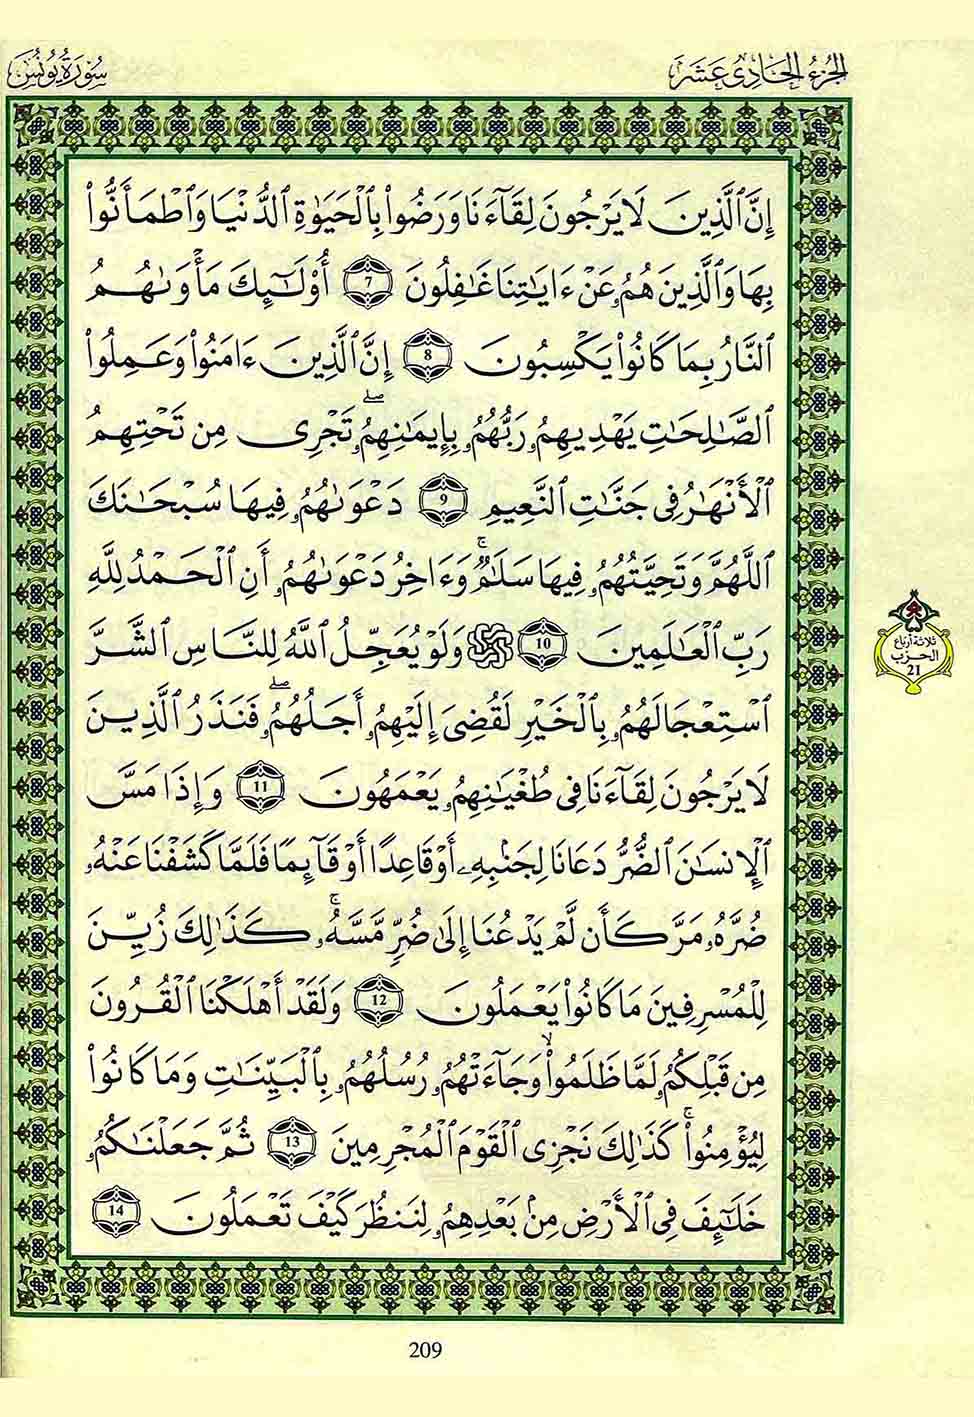 الجزء الحادي عشر
سورة يونس
إِنَّ ٱلَّذِينَ لَا يَرۡجُونَ لِقَآءَنَا وَرَضُوا۟ بِٱلۡحَيَوٰةِ ٱلدُّنۡيَا وَٱطۡمَأَنُّوا۟
بِهَا وَٱلَّذِينَ هُمُۥ عَنۡ ءَايَٰتِنَا غَٰفِلُونَ 7 أُو۟لَٰٓئِكَ مَأۡوَىٰهُمُ
ٱلنَّارُ بِمَا كَانُوا۟ يَكۡسِبُونَ 8 إِنَّ ٱلَّذِينَ ءَامَنُوا۟ وَعَمِلُوا۟
ٱلصَّٰلِحَٰتِ يَهۡدِيهِمُۥ رَبُّهُمُۥ بِإِيمَٰنِهِمُۥۖ تَجۡرِى مِن تَحۡتِهِمُ
ٱلۡأَنۡهَٰرُ فِى جَنَّٰتِ ٱلنَّعِيمِ 9 دَعۡوَىٰهُمُۥ فِيهَا سُبۡحَٰنَكَ
ٱللَّهُمَّ وَتَحِيَّتُهُمُۥ فِيهَا سَلَٰمٌۚ وَءَاخِرُ دَعۡوَىٰهُمُۥ أَنِ ٱلۡحَمۡدُ لِلَّهِ
رَبِّ ٱلۡعَٰلَمِينَ 10 ۞ وَلَوۡ يُعَجِّلُ ٱللَّهُ لِلنَّاسِ ٱلشَّرَّ
ٱسۡتِعۡجَالَهُمُۥ بِٱلۡخَيۡرِ لَقُضِىَ إِلَيۡهِمُۥ أَجَلُهُمُۥۖ فَنَذَرُ ٱلَّذِينَ
لَا يَرۡجُونَ لِقَآءَنَا فِى طُغۡيَٰنِهِمُۥ يَعۡمَهُونَ 11 وَإِذَا مَسَّ
ٱلۡإِنسَٰنَ ٱلضُّرُّ دَعَانَا لِجَنۢبِهِۦٓ أَوۡ قَاعِدًا أَوۡ قَآئِمًا فَلَمَّا كَشَفۡنَا عَنۡهُۥ
ضُرَّهُۥ مَرَّ كَأَن لَّمۡ يَدۡعُنَا إِلَىٰ ضُرٍّ مَّسَّهُۥۚ كَذَٰلِكَ زُيِّنَ
لِلۡمُسۡرِفِينَ مَا كَانُوا۟ يَعۡمَلُونَ 12 وَلَقَدۡ أَهۡلَكۡنَا ٱلۡقُرُونَ
مِن قَبۡلِكُمُۥ لَمَّا ظَلَمُوا۟ۙ وَجَآءَتۡهُمُۥ رُسُلُهُمُۥ بِٱلۡبَيِّنَٰتِ وَمَا كَانُوا۟
لِيُؤۡمِنُوا۟ۚ كَذَٰلِكَ نَجۡزِى ٱلۡقَوۡمَ ٱلۡمُجۡرِمِينَ 13 ثُمَّ جَعَلۡنَٰكُمُۥ
خَلَٰٓئِفَ فِى ٱلۡأَرۡضِ مِنۢ بَعۡدِهِمُۥ لِنَنظُرَ كَيۡفَ تَعۡمَلُونَ 14
ثلاثة أرباع
الحزب
21
209